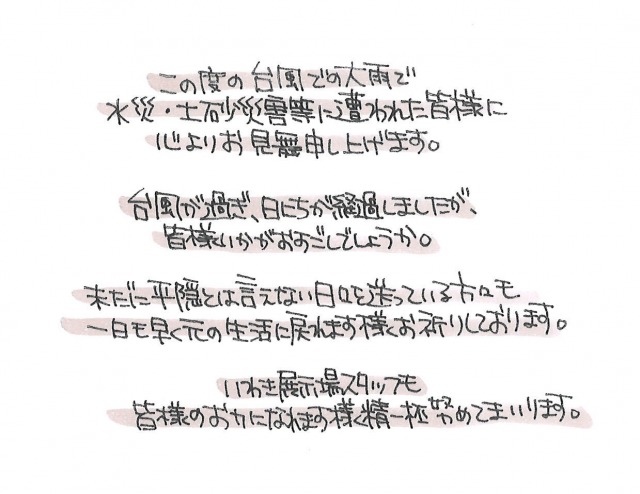 この度の台風での大雨で
水災・土砂災害等に遭われた皆様に
心よりお見舞申し上げます。
台風が過ぎ、日にちが経過しましたが、
皆様いかがおすごしでしょうか。
未だに平穏とは言えない日々を送っている方々も
一日も早く元の生活に戻れます様お祈りしております。
いわき展示場スタッフも
皆様のお力になれます様精一杯努めてまいります。